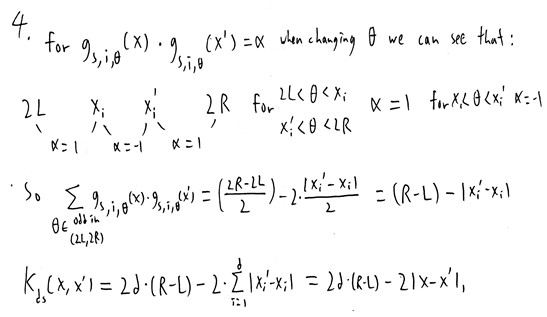 4. for g_{s,i,θ}(x) · g_{s,i,θ}(x') = α when changing θ we can see that:
2L x_i x_i' 2R for 2L < θ < x_i x_i' < θ < 2R α = 1 for x_i < θ < x_i' α = -1
α = 1 α = -1 α = 1
· So ∑_{θ ∈ odd in (2L,2R)} g_{s,i,θ}(x) · g_{s,i,θ}(x') = (\frac{2R-2L}{2}) - 2 · \frac{|x_i' - x_i|}{2} = (R-L) - |x_i' - x_i|
K_{ds}(x, x') = 2d · (R-L) - 2 · ∑_{i=1}^{d} |x_i' - x_i| = 2d · (R-L) - 2|x - x'|_1